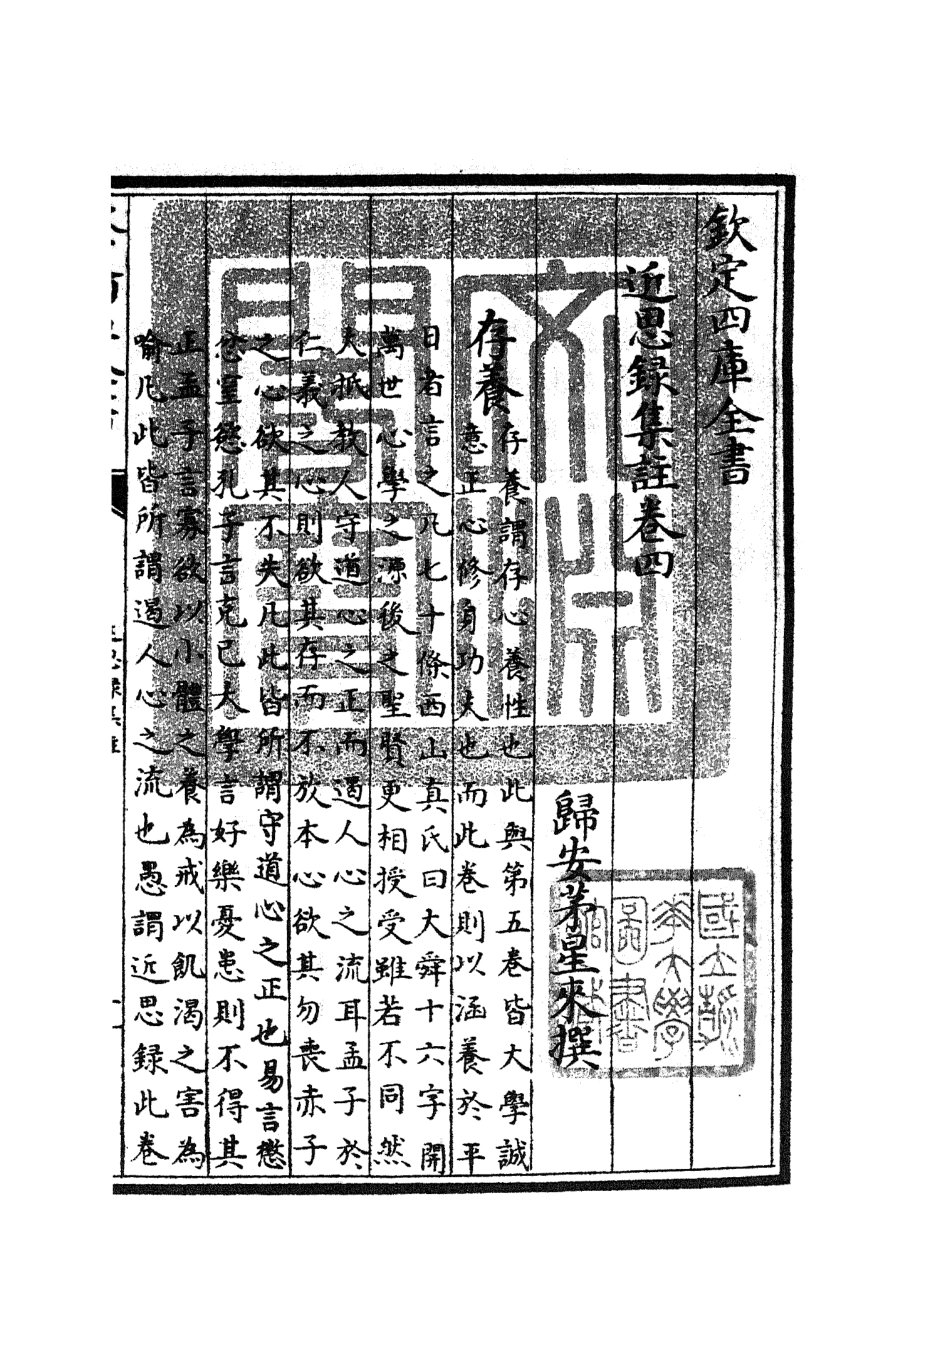 欽定四庫全書
近思録集註卷四
歸安茅星來撰
存養
存養謂存心養性也此與第五卷皆大學誠
意正心修身功夫也而此卷則以涵養於平
日者言之凡七十條西山真氏曰大舜十六字開
萬世心學之源後之聖賢更相授受雖若不同然
大抵教人守道心之正而遏人心之流耳孟子於
仁義之心則欲其存而不放本心欲其勿喪赤子
之心欲其不失凡此皆所謂守道心之正也易言懲
忿窒慾孔子言克己大學言好樂憂患則不得其
正孟子言寡欲以小體之養為戒以飢渴之害為
喻凡此皆所謂遏人心之流也愚謂近思録此卷